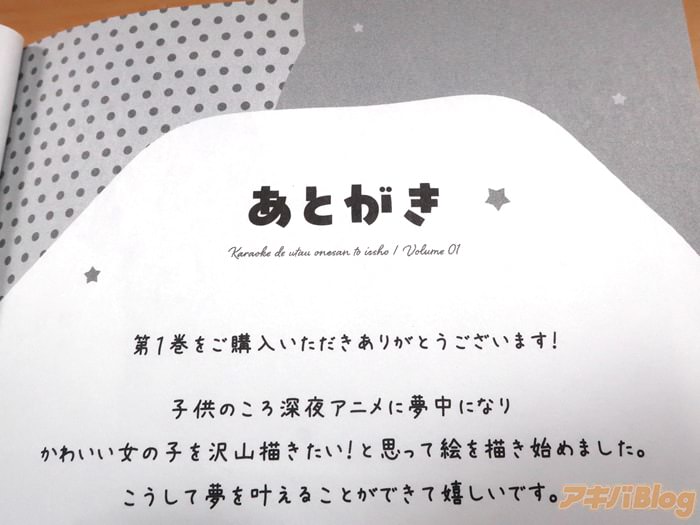 あとがき
Karaoke de utau onesan to issho / Volume 01
第1巻をご購入いただきありがとうございます!
子供のころ深夜アニメに夢中になり
かわいい女の子を沢山描きたい!と思って絵を描き始めました。
こうして夢を叶えることができて嬉しいです。
アキバBlog